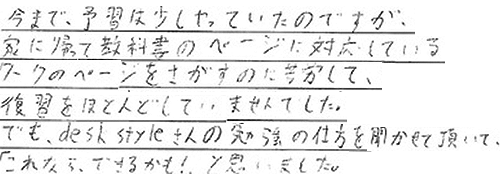 今まで、予習は少しやっていたのですが、
家に帰て教科書のページに対応している
ワークのページをさがすのに苦労して、
復習をほとんどしていませんでした。
でも、desk styleさんの勉強の仕方を聞かせて頂いて、
「これなら、できるかも!」と思いました。